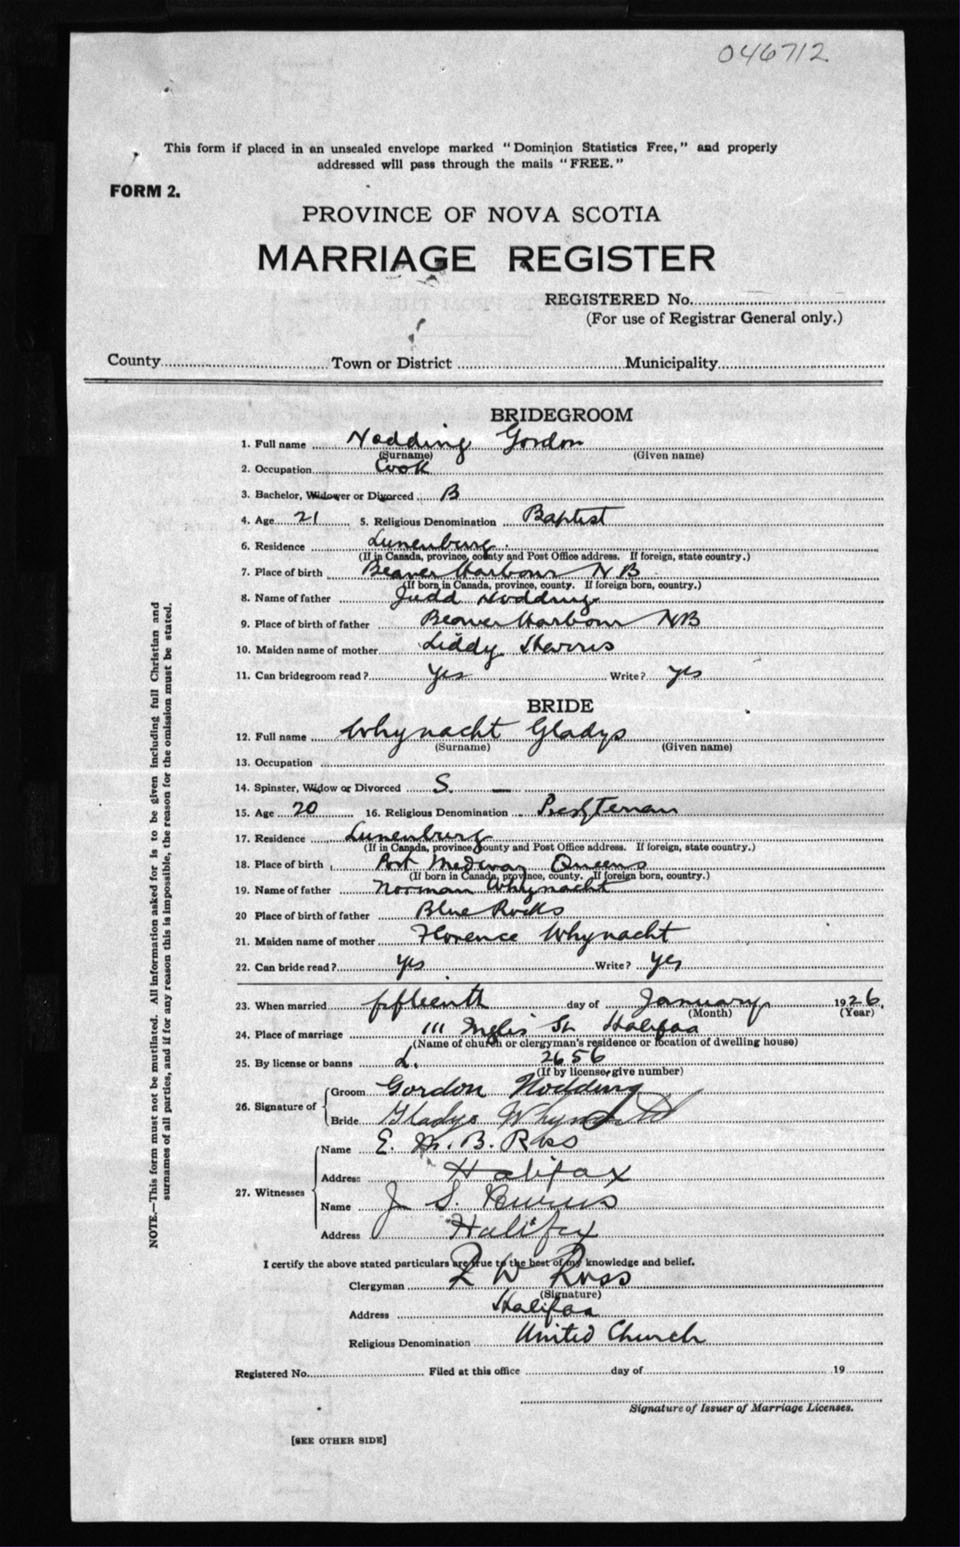 046712
This form if placed in an unsealed envelope marked "Dominion Statistics Free," and properly
addressed will pass through the mails "FREE."
FORM 2.
PROVINCE OF NOVA SCOTIA
MARRIAGE REGISTER
REGISTERED No.
(For use of Registrar General only.)
County Town or District Municipality
BRIDEGROOM
1. Full name Nodding Gordon
(Surname) (Given name)
2. Occupation Cook
3. Bachelor, Widower or Divorced B
4. Age 21 5. Religious Denomination Baptist
6. Residence Lunenburg.
(If in Canada, province, county and Post Office address. If foreign, state country.)
7. Place of birth Beaver Harbour NB
(If born in Canada, province, county. If foreign born, country.)
8. Name of father Judd Nodding
9. Place of birth of father Beaver Harbour NB
10. Maiden name of mother Liddy
11. Can bridegroom read? Yes Write? Yes
BRIDE
12. Full name Whynacht Gladys
(Surname) (Given name)
13. Occupation
14. Spinster, Widow or Divorced S. —
15. Age 20 16. Religious Denomination
17. Residence Lunenburg
(If in Canada, province, county and Post Office address. If foreign, state country.)
18. Place of birth Port Medway Queens
(If born in Canada, province, county. If foreign born, country.)
19. Name of father Norman Whynacht
20 Place of birth of father Blue Rocks
21. Maiden name of mother Florence Whynacht
22. Can bride read? Yes Write? Yes
23. When married fifteenth day of January 1926,
(Month) (Year)
24. Place of marriage 111 Inglis St Halifax
(Name of church or clergyman's residence or location of dwelling house)
25. By license or banns L. 2656
(If by license, give number)
26. Signature of
Groom Gordon Nodding
Bride Gladys Whynacht
27. Witnesses
Name E. M. B. Ross
Address Halifax
Name J S.
Address Halifax
I certify the above stated particulars are true to the best of my knowledge and belief.
Clergyman W Ross
(Signature)
Address Halifax
Religious Denomination United Church
Registered No. Filed at this office day of 19
Signature of Issuer of Marriage Licenses.
[SEE OTHER SIDE]
NOTE.—This form must not be mutilated. All information asked for is to be given including full Christian and
surnames of all parties, and if for any reason this is impossible, the reason for the omission must be stated.